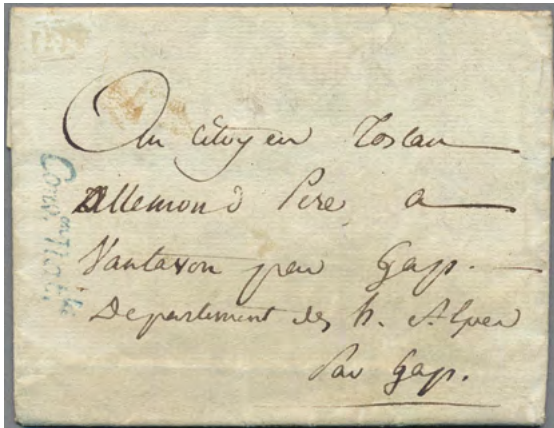 Au Citoyen Toslau
Allemond Pere a
Vantavon par Gap.
Departement des h. Alpes
Par Gap.
Conv.on Nat.le